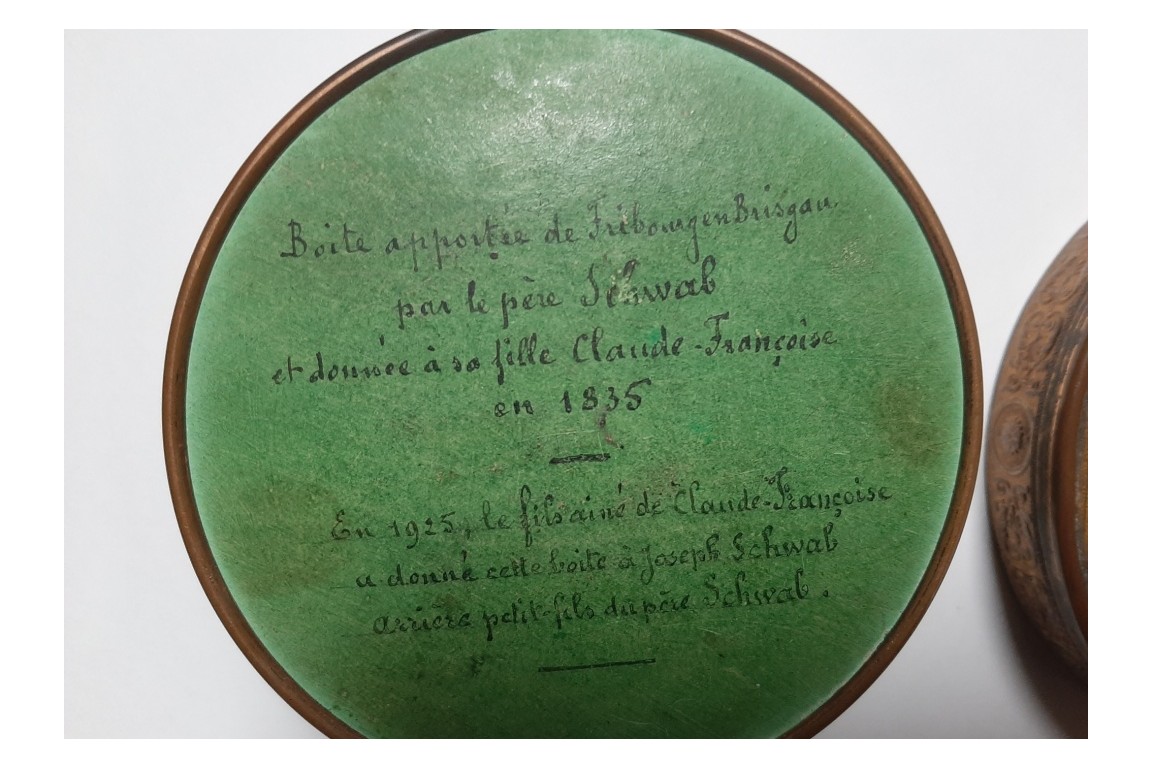 Boite apportée de Fribourg en Brisgau
par le père Schwab
et donnée à sa fille Claude-Françoise
en 1835
En 1925, le fils ainé de Claude-Françoise
a donné cette boite à Joseph Schwab
arrière petit-fils du père Schwab.